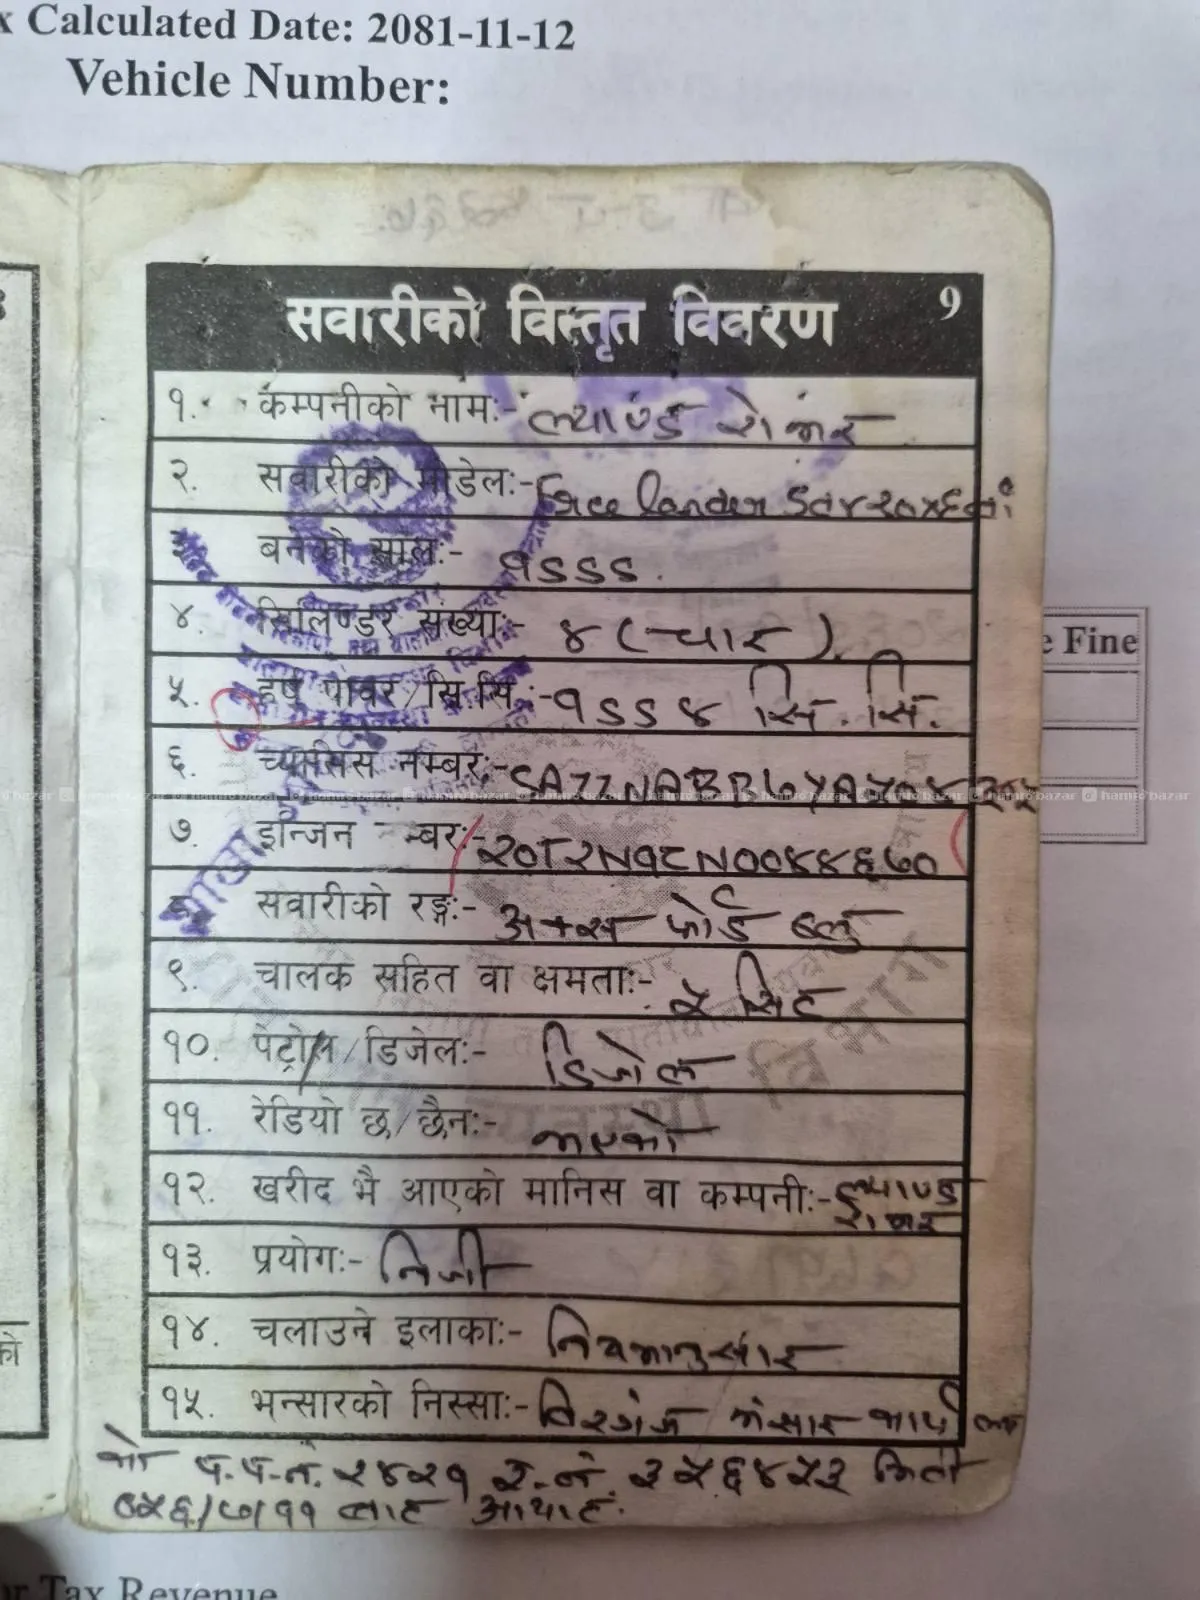 x Calculated Date: 2081-11-12
Vehicle Number:
सवारीको विस्तृत विवरण 9
१. कम्पनीको नाम:- ल्याण्ड रोभर
२. सवारीको मोडेल:- Free lander
३. बनेको साल:- १९९९.
४. सिलिण्डर संख्या:- ४ (चार)
५. हर्ष पावर/सि.सि.:- १९९४ सि. सि.
६. च्यासिस नम्बर:-
७. इन्जिन म्बर:- 20T2N१८N००४४६७०
८. सवारीको रङ्ग:- फोर्ड ब्लु
९. चालक सहित वा क्षमता:- ५ सिट
१०. पेट्रोल/डिजेल:- डिजेल
११. रेडियो छ/छैन:- भएको
१२. खरीद भै आएको मानिस वा कम्पनी:- ल्याण्ड
रोभर
१३. प्रयोग:- निजी
१४. चलाउने इलाका:- नियमानुसार
१५. भन्सारको निस्सा:- विरगंज भंसार
को प.प.नं. २४२१ र.नं. ३५६४५३ मिती
०५६/७/११ बाट
e Fine
hamrobazar
or Tax Revenue